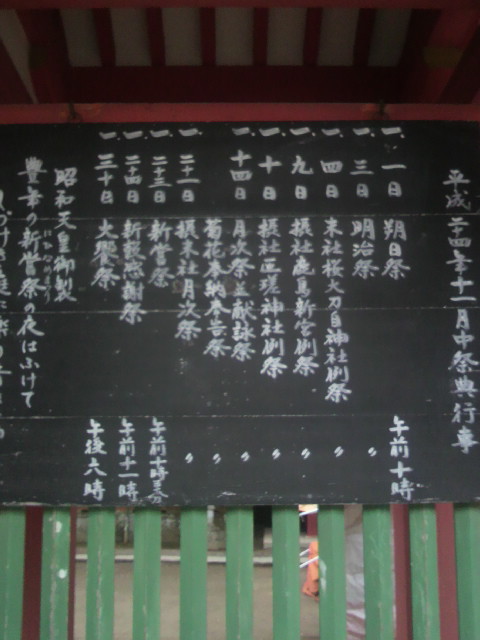 平成二十四年十一月中祭典行事
一、一日 朔日祭 午前十時
一、三日 明治祭 〃
一、四日 末社桜大刀自神社例祭 〃
一、九日 摂社鹿島新宮例祭 〃
一、十日 摂社匝瑳神社例祭 〃
一、十四日 月次祭並献詠祭 〃
菊花奉納奉告祭 〃
一、二十一日 摂末社月次祭 〃
一、二十三日 新嘗祭 午前十時
一、二十四日 新穀感謝祭 午前十一時
一、三十日 大饗祭 午後六時
昭和天皇御製
豊年の新嘗祭の夜はふけて